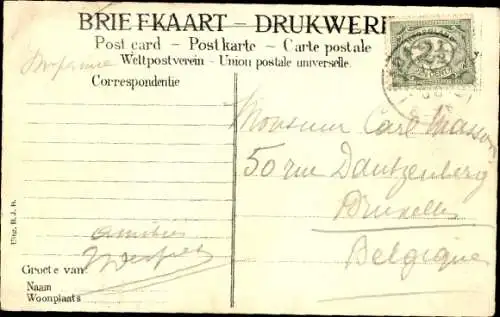 BRIEFKAART – DRUKWERK
Post card – Postkarte – Carte postale
Weltpostverein – Union postale universelle.
Correspondentie
Monsieur Carl Masson
50 rue Dautzenberg
Bruxelles
Belgique
amitiés
Groete van:
Naam
Woonplaats
Uitg. R. J. B.
2½